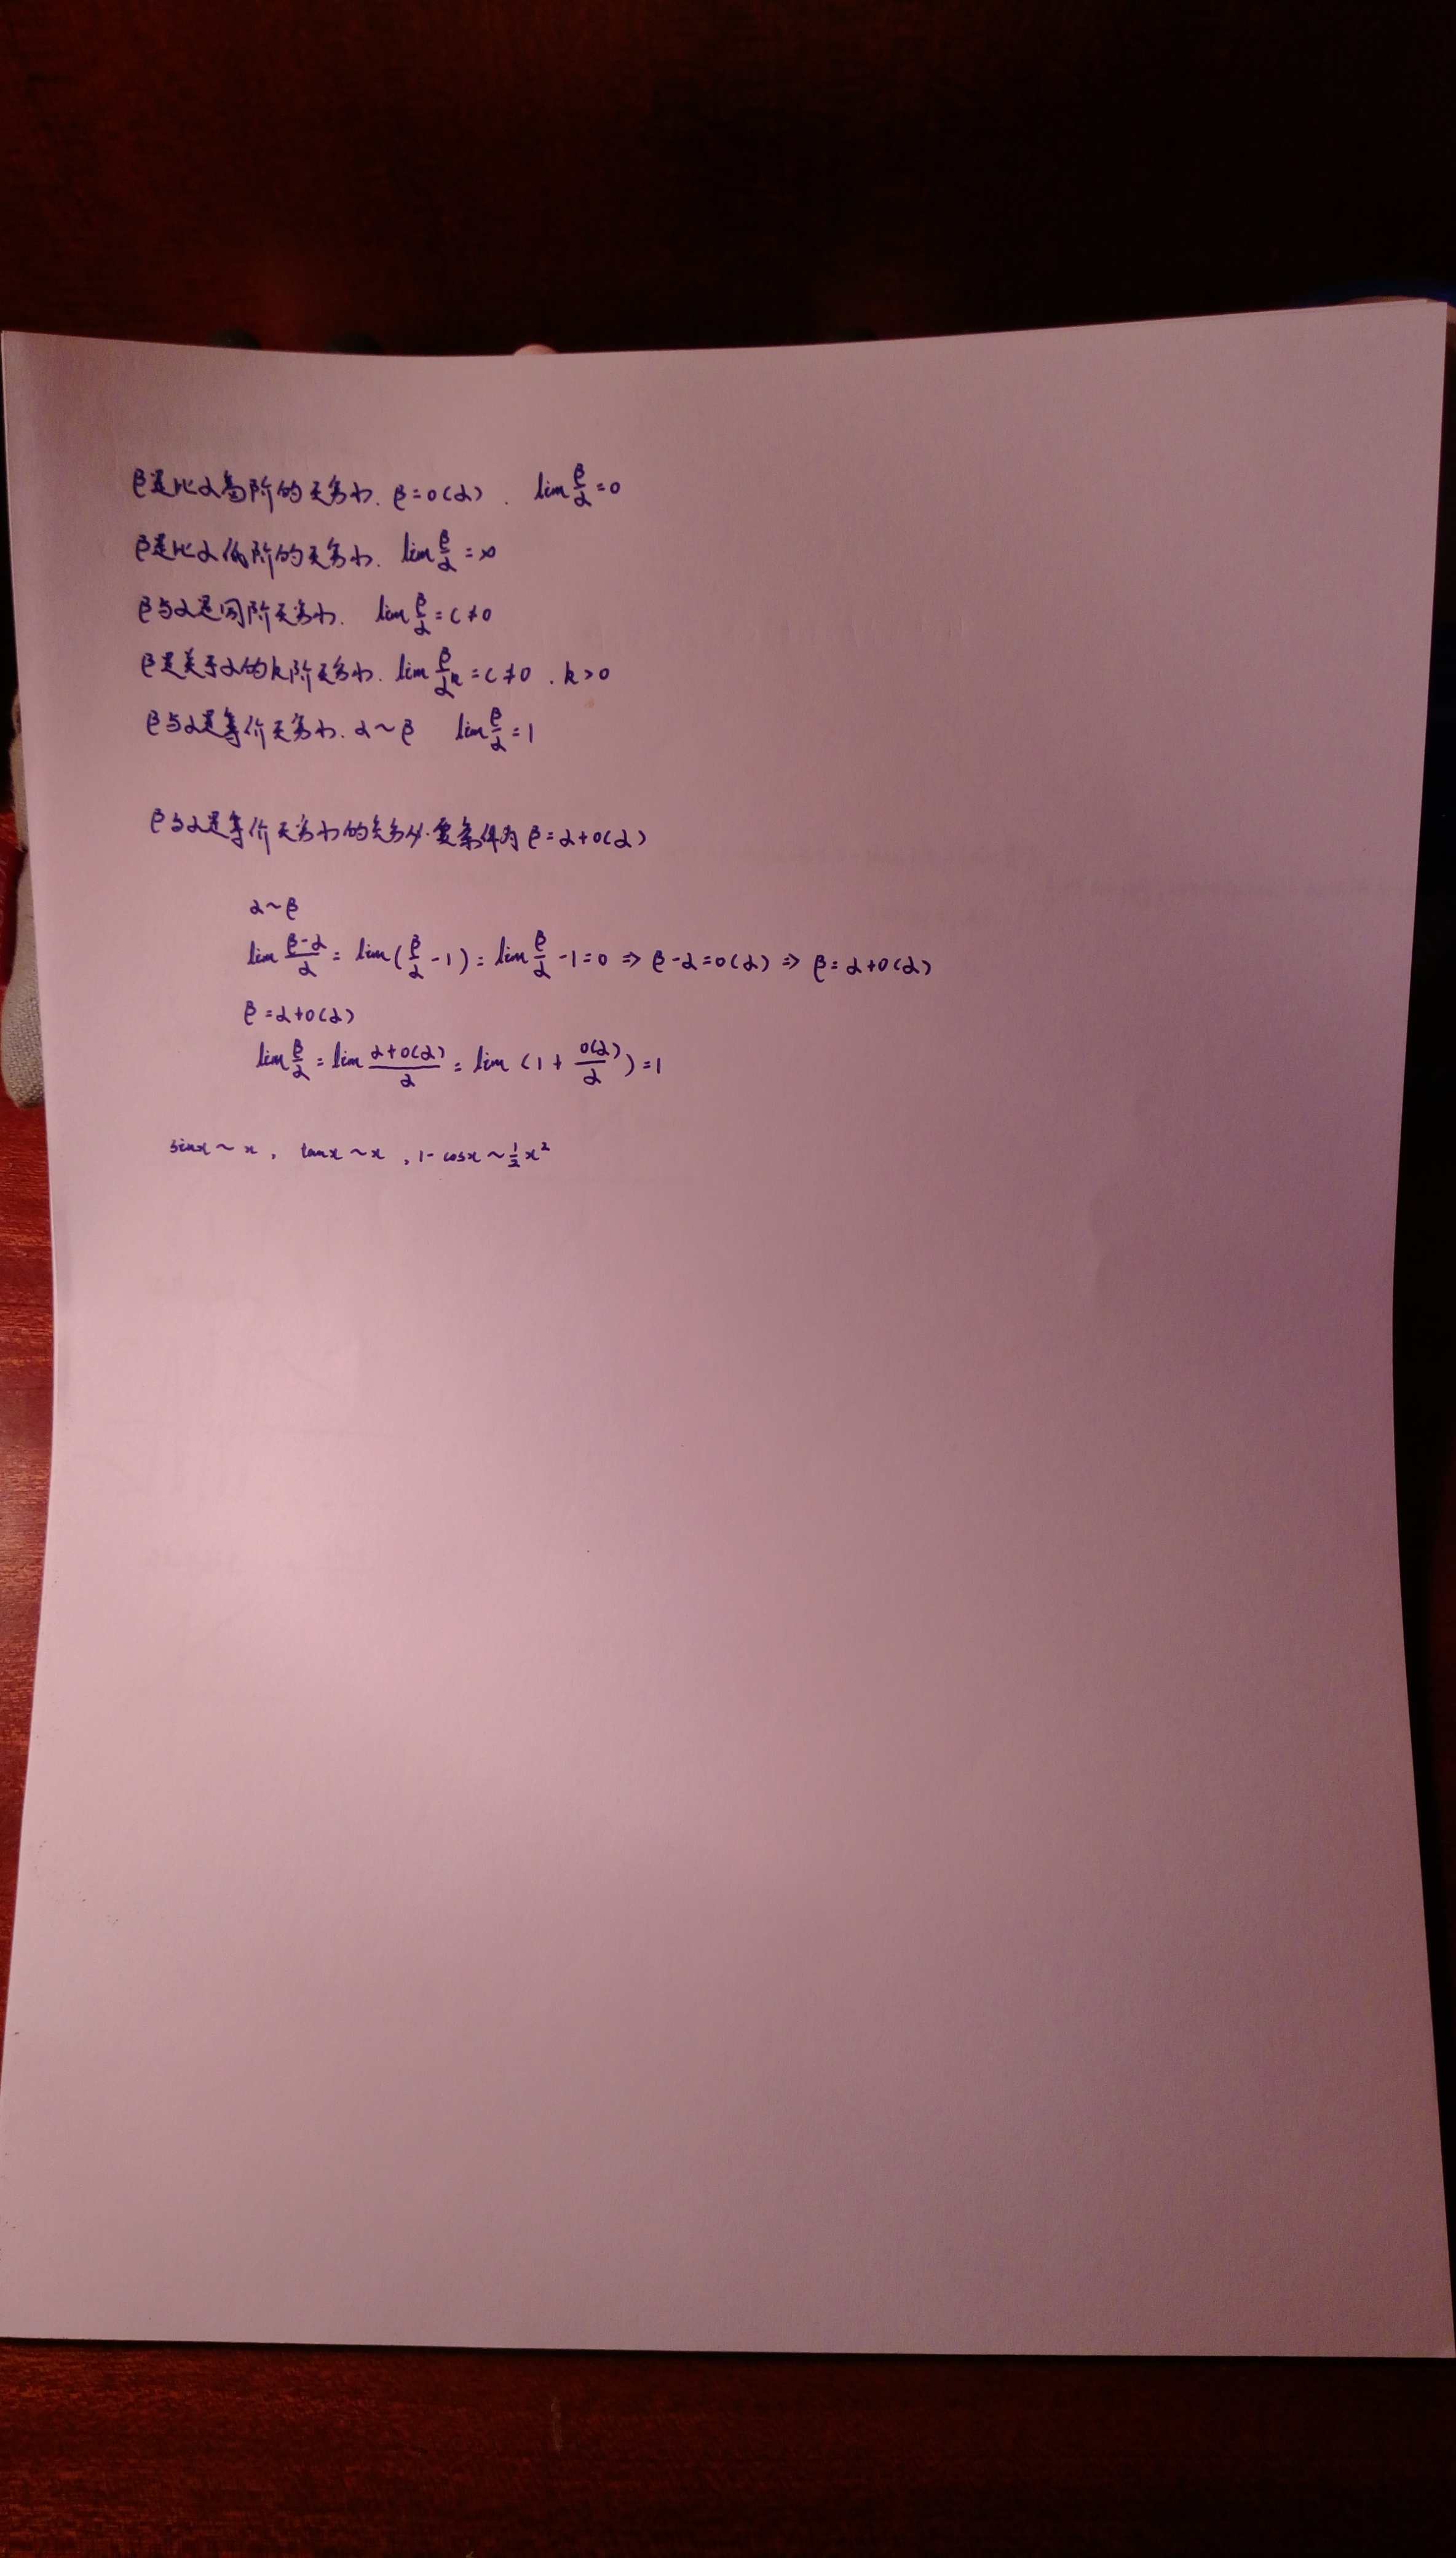 β是比α高阶的无穷小. β=o(α). lim β/α=0
β是比α低阶的无穷小. lim β/α=∞
β与α是同阶无穷小. lim β/α=c≠0
β是关于α的k阶无穷小. lim β/α^k=c≠0. k>0
β与α是等价无穷小. α~β lim β/α=1
β与α是等价无穷小的充分必要条件为β=α+o(α)
α~β
lim (β-α)/α = lim(β/α -1) = lim β/α -1=0 ⇒ β-α=o(α) ⇒ β=α+o(α)
β=α+o(α)
lim β/α = lim (α+o(α))/α = lim (1+ o(α)/α)=1
sinx~x, tanx~x, 1-cosx~½x²